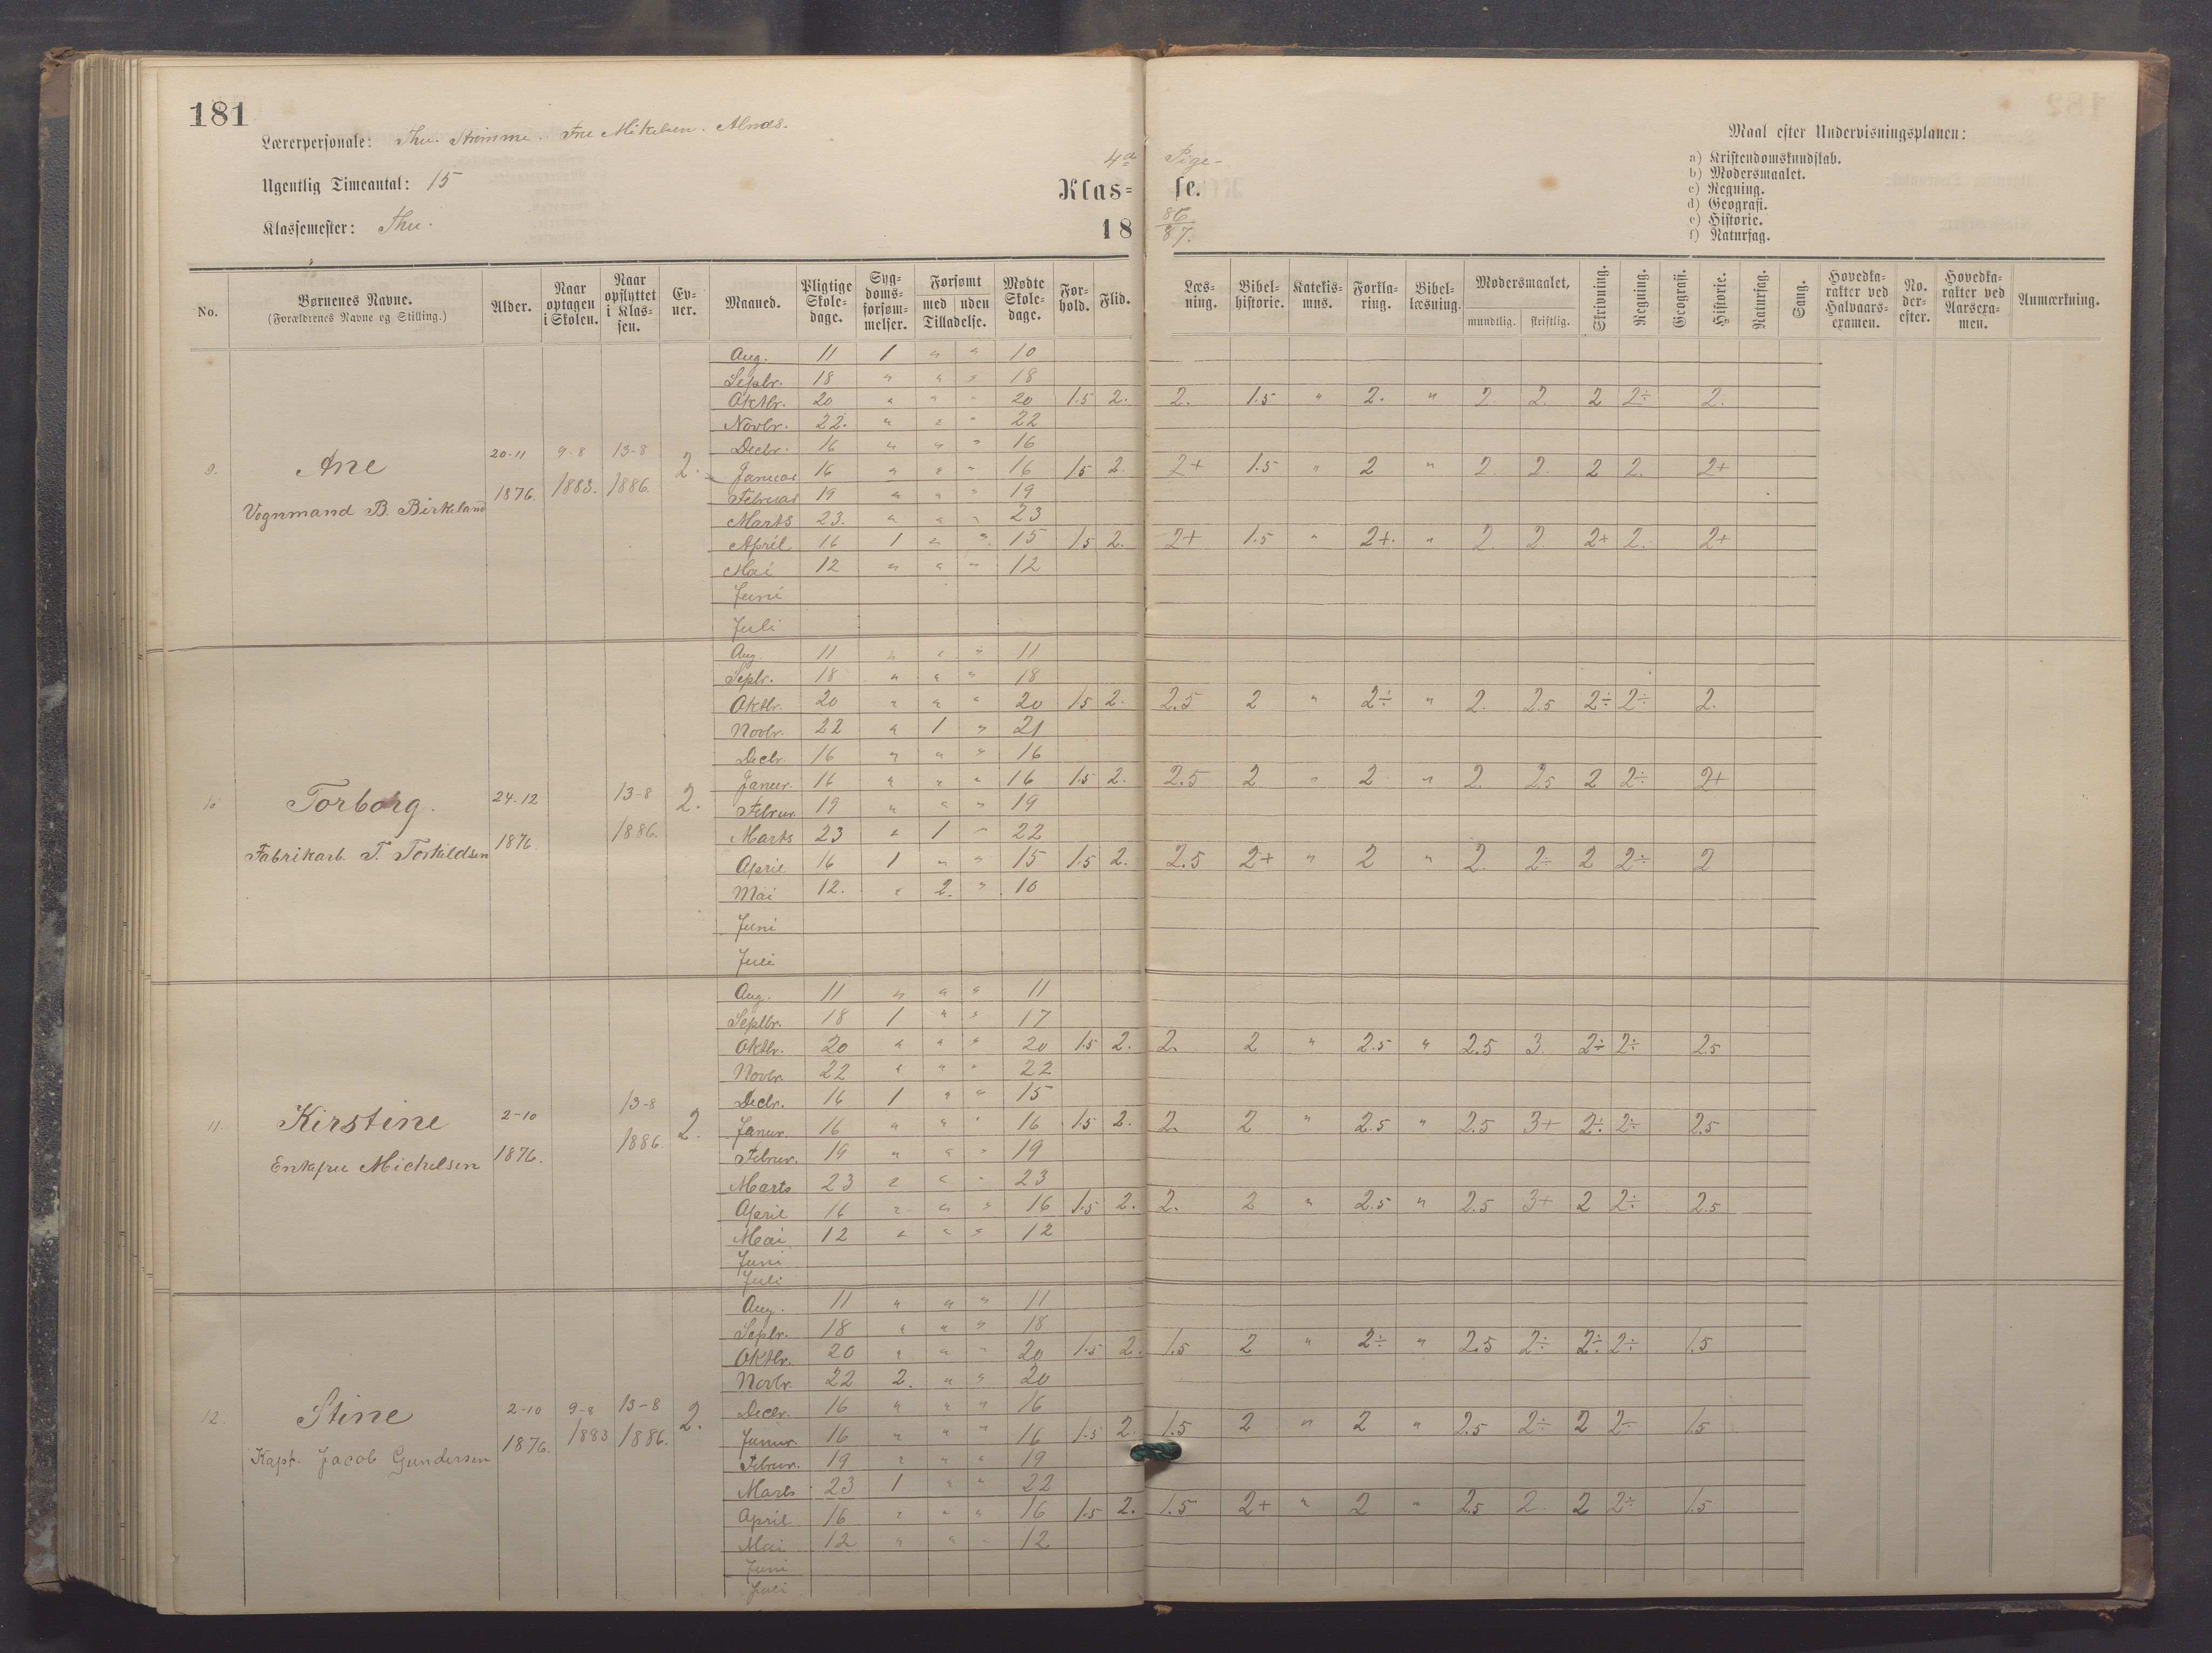 181
Lærerpersonale: Thu. Strømme. Fru Mikelsen. Alnæs.
Ugentlig Timeantal: 15
Klassemester: Thu.
4a Pige-
Klas= se.
18 86/87.
Maal efter Undervisningsplanen:
a) Kristendomskundskab.
b) Modersmaalet.
c) Regning.
d) Geografi.
e) Historie.
f) Naturfag.
No. | Børnenes Navne. (Forældrenes Navne og Stilling.) | Alder. | Naar optagen i Skolen. | Naar opflyttet i Klas-sen. | Ev-ner. | Maaned. | Pligtige Skole-dage. | Syg-doms-forsøm-melser. | Forsømt med uden Tilladelse. | Mødte Skole-dage. | For-hold. | Flid. | Læs-ning. | Bibel-historie. | Katekis-mus. | Forkla-ring. | Bibel-læsning. | Modersmaalet, mundtlig. skriftlig. | Skrivning. | Regning. | Geografi. | Historie. | Naturfag. | Sang. | Hovedka-rakter ved Halvaars-examen. | No. der-efter. | Hovedka-rakter ved Aarsexa-men. | Anmærkning.
9. Ane
Vognmand B. Birkeland
20-11 1876. 9-8 1883. 13-8 1886. 2.
Aug. 11 1 " " 10
Septbr. 18 " " " 18
Oktbr. 20 " " " 20 1.5 2. 2. 1.5 " 2. " 2. 2. 2 2÷ 2.
Novbr. 22. " " " 22
Decbr. 16 " " " 16
Januar 16 " " " 16 1.5 2. 2+ 1.5 " 2 " 2. 2. 2 2. 2+
Februar 19 " " " 19
Marts 23. " " " 23
April 16 1 " " 15 1.5 2. 2+ 1.5 " 2+. " 2. 2. 2+ 2. 2+
Mai 12 " " " 12
Juni
Juli
10 Torborg.
Fabrikarb. T. Torkildsen
24-12 1876. 13-8 1886. 2.
Aug. 11 " " " 11
Septr. 18 " " " 18
Oktbr. 20 " " " 20 1.5 2. 2.5 2 " 2÷ " 2. 2.5 2÷ 2÷ 2.
Novbr. 22 " 1 " 21
Decbr. 16 " " " 16
Januar. 16 " " " 16 1.5 2. 2.5 2 " 2 " 2. 2.5 2 2÷ 2+
Februr. 19 " " " 19
Marts 23 " 1 " 22
April 16 1 " " 15 1.5 2. 2.5 2+ " 2 " 2. 2÷ 2 2÷ 2
Mai 12. " 2. " 10
Juni
Juli
11. Kirstine
Enkefru Michelsen
2-10 1876. 13-8 1886. 2.
Aug. 11 " " " 11
Septbr. 18 1 " " 17
Oktbr. 20 " " " 20 1.5 2. 2. 2 " 2.5 " 2.5 3. 2÷ 2÷ 2.5
Novbr. 22 " " " 22
Decbr. 16 1 " " 15
Janur. 16 " " " 16 1.5 2. 2. 2 " 2.5 " 2.5 3+ 2÷ 2÷ 2.5
Februr. 19 " " " 19
Marts 23 " " " 23
April 16 " " " 16 1.5 2. 2. 2 " 2.5 " 2.5 3+ 2 2÷ 2.5
Mai 12 " " " 12
Juni
Juli
12. Stine
Kapt. Jacob Gundersen
2-10 1876. 9-8 1883 13-8 1886. 2.
Aug. 11 " " " 11
Septr. 18 " " " 18
Oktbr. 20 " " " 20 1.5 2. 1.5 2 " 2÷ " 2.5 2÷ 2÷ 2÷ 1.5
Novbr. 22 2. " " 20
Decbr. 16 " " " 16
Januar. 16 " " " 16 1.5 2. 1.5 2 " 2 " 2.5 2÷ 2 2÷ 1.5
Februr. 19 " " " 19
Marts 23 1 " " 22
April 16 " " " 16 1.5 2. 1.5 2+ " 2 " 2.5 2. 2 2÷ 1.5
Mai 12 " " " 12
Juni
Juli